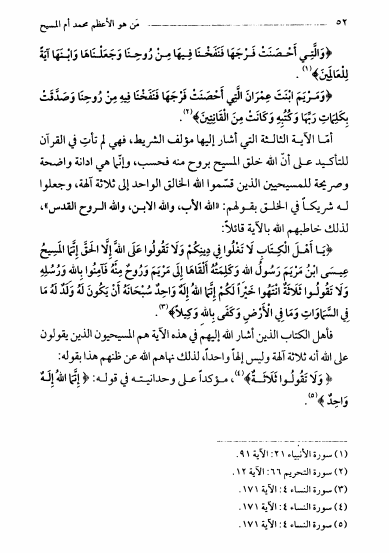 ٥٢ من هو الأعظم محمد أم المسيح
﴿وَالَّتِي أَحْصَنَتْ فَرْجَهَا فَنَفَخْنَا فِيهَا مِنْ رُوحِنَا وَجَعَلْنَاهَا وَابْنَهَا آيَةً
لِلْعَالَمِينَ﴾(١).
﴿وَمَرْيَمَ ابْنَتَ عِمْرَانَ الَّتِي أَحْصَنَتْ فَرْجَهَا فَنَفَخْنَا فِيهِ مِنْ رُوحِنَا وَصَدَّقَتْ
بِكَلِمَاتِ رَبِّهَا وَكُتُبِهِ وَكَانَتْ مِنَ الْقَانِتِينَ﴾(٢).
أمّا الآية الثالثة التي أشار إليها مؤلف الشريط، فهي لم تأتِ في القرآن
للتأكيد على أنّ الله خلق المسيح بروح منه فحسب، وإنّما هي ادانة واضحة
وصريحة للمسيحيين الذين قسّموا الله الخالق الواحد إلى ثلاثة آلهة، وجعلوا
له شريكاً في الخلق بقولهم: «الله الأب، والله الابن، والله الروح القدس»،
لذلك خاطبهم الله بالآية قائلاً:
﴿يَا أَهْلَ الْكِتَابِ لَا تَغْلُوا فِي دِينِكُمْ وَلَا تَقُولُوا عَلَى اللهِ إِلَّا الْحَقَّ إِنَّمَا الْمَسِيحُ
عِيسَى ابْنُ مَرْيَمَ رَسُولُ اللهِ وَكَلِمَتُهُ أَلْقَاهَا إِلَى مَرْيَمَ وَرُوحٌ مِنْهُ فَآمِنُوا بِاللهِ وَرُسُلِهِ
وَلَا تَقُولُوا ثَلَاثَةٌ انْتَهُوا خَيْراً لَكُمْ إِنَّمَا اللهُ إِلَهٌ وَاحِدٌ سُبْحَانَهُ أَنْ يَكُونَ لَهُ وَلَدٌ لَهُ مَا
فِي السَّمَاوَاتِ وَمَا فِي الْأَرْضِ وَكَفَى بِاللهِ وَكِيلاً﴾(٣).
فأهل الكتاب الذين أشار الله إليهم في هذه الآية هم المسيحيون الذين يقولون
على الله أنه ثلاثة آلهة وليس إلهاً واحداً، لذلك نهاهم الله عن ظنهم هذا بقوله:
﴿وَلَا تَقُولُوا ثَلَاثَةٌ﴾(٤)، مؤكداً على وحدانيته في قوله: ﴿إِنَّمَا اللهُ إِلَهٌ
وَاحِدٌ﴾(٥).
(١) سورة الأنبياء ٢١: الآية ٩١.
(٢) سورة التحريم ٦٦: الآية ١٢.
(٣) سورة النساء ٤: الآية ١٧١.
(٤) سورة النساء ٤: الآية ١٧١.
(٥) سورة النساء ٤: الآية ١٧١.